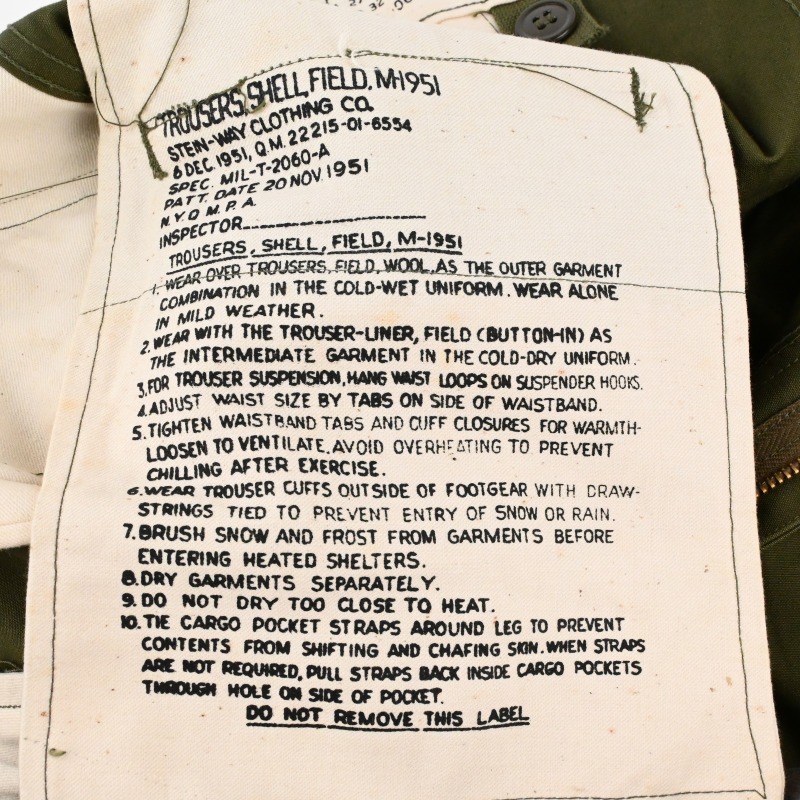 TROUSERS, SHELL, FIELD, M-1951
STEIN-WAY CLOTHING CO.
6 DEC 1951, Q.M. 22215-01-6554
SPEC. MIL-T-2060-A
PATT. DATE 20 NOV 1951
N.Y.Q.M.P.A.
INSPECTOR
TROUSERS, SHELL, FIELD, M-1951
1. WEAR OVER TROUSERS, FIELD, WOOL, AS THE OUTER GARMENT
COMBINATION IN THE COLD-WET UNIFORM. WEAR ALONE
IN MILD WEATHER.
2. WEAR WITH THE TROUSER-LINER, FIELD (BUTTON-IN) AS
THE INTERMEDIATE GARMENT IN THE COLD-DRY UNIFORM.
3. FOR TROUSER SUSPENSION, HANG WAIST LOOPS ON SUSPENDER HOOKS.
4. ADJUST WAIST SIZE BY TABS ON SIDE OF WAISTBAND.
5. TIGHTEN WAISTBAND TABS AND CUFF CLOSURES FOR WARMTH-
LOOSEN TO VENTILATE. AVOID OVERHEATING TO PREVENT
CHILLING AFTER EXERCISE.
6. WEAR TROUSER CUFFS OUTSIDE OF FOOTGEAR WITH DRAW-
STRINGS TIED TO PREVENT ENTRY OF SNOW OR RAIN.
7. BRUSH SNOW AND FROST FROM GARMENTS BEFORE
ENTERING HEATED SHELTERS.
8. DRY GARMENTS SEPARATELY.
9. DO NOT DRY TOO CLOSE TO HEAT.
10. TIE CARGO POCKET STRAPS AROUND LEG TO PREVENT
CONTENTS FROM SHIFTING AND CHAFING SKIN. WHEN STRAPS
ARE NOT REQUIRED, PULL STRAPS BACK INSIDE CARGO POCKETS
THROUGH HOLE ON SIDE OF POCKET.
DO NOT REMOVE THIS LABEL